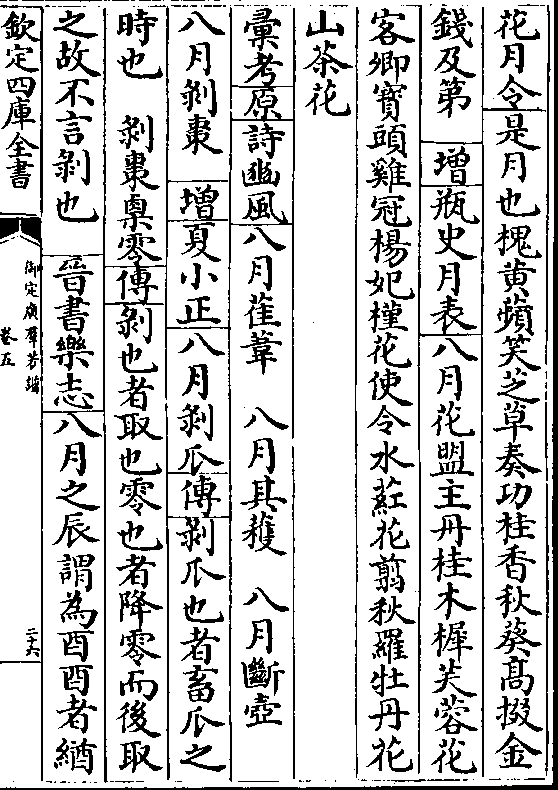 花月令是月也槐黄蘋笑芝草奏功桂香秋葵髙掇金
錢及第　增瓶史月表八月花盟主丹桂木樨芙蓉花
客卿寶頭雞冠楊妃槿花使令水葒花翦秋羅牡丹花
山茶花
彚考原詩豳風八月萑葦　八月其穫　八月斷壺
八月剝棗　增夏小正八月剝瓜傳剝瓜也者畜瓜之
時也　剝棗㮚零傳剝也者取也零也者降零而後取
之故不言剝也　晉書樂志八月之辰謂為酉酉者緧
欽定四庫全書
御定廣羣芳譜
卷五
二十六